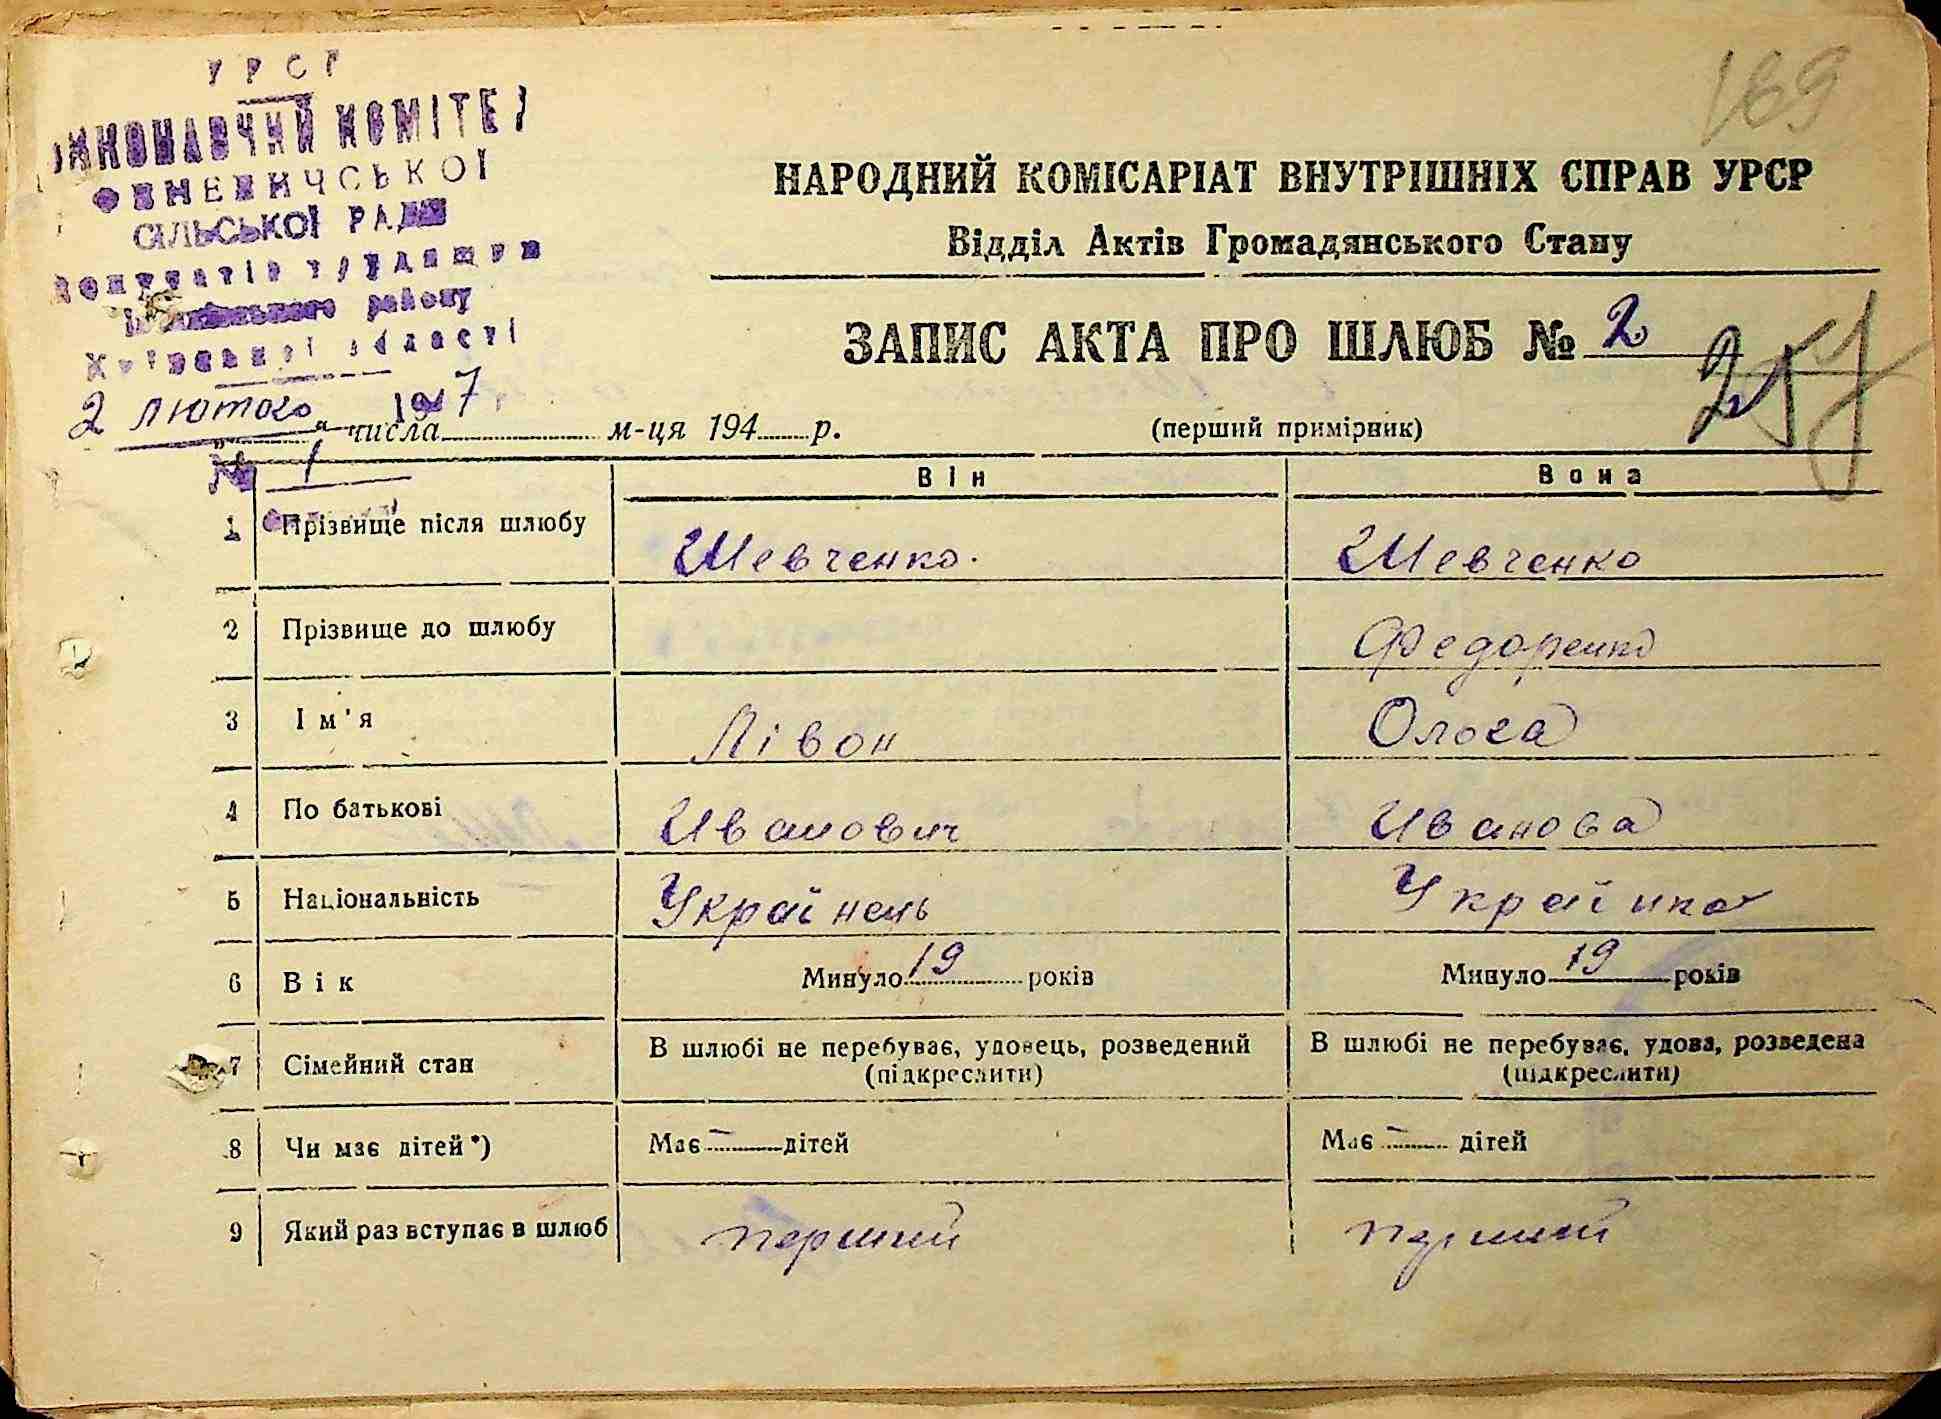 УРСР
ВИКОНАВЧИЙ КОМІТЕТ
ФЕНЕВИЧСЬКОЇ
СІЛЬСЬКОЇ РАДИ
депутатів трудящих
району
Київської області
2 лютого 1947
№ 1
169
НАРОДНИЙ КОМІСАРІАТ ВНУТРІШНІХ СПРАВ УРСР
Відділ Актів Громадянського Стану
ЗАПИС АКТА ПРО ШЛЮБ № 2
„ “ числа м-ця 194 р. (перший примірник)
Він Вона
1 Прізвище після шлюбу Шевченко. Шевченко
2 Прізвище до шлюбу Федоренко
3 Ім'я Лівон Ольга
4 По батькові Иванович Иванова
5 Національність Українець Українка
6 Вік Минуло 19 років Минуло 19 років
7 Сімейний стан В шлюбі не перебуває, удовець, розведений (підкреслити) В шлюбі не перебуває, удова, розведена (підкреслити)
8 Чи має дітей *) Має – дітей Має – дітей
9 Який раз вступає в шлюб перший перший